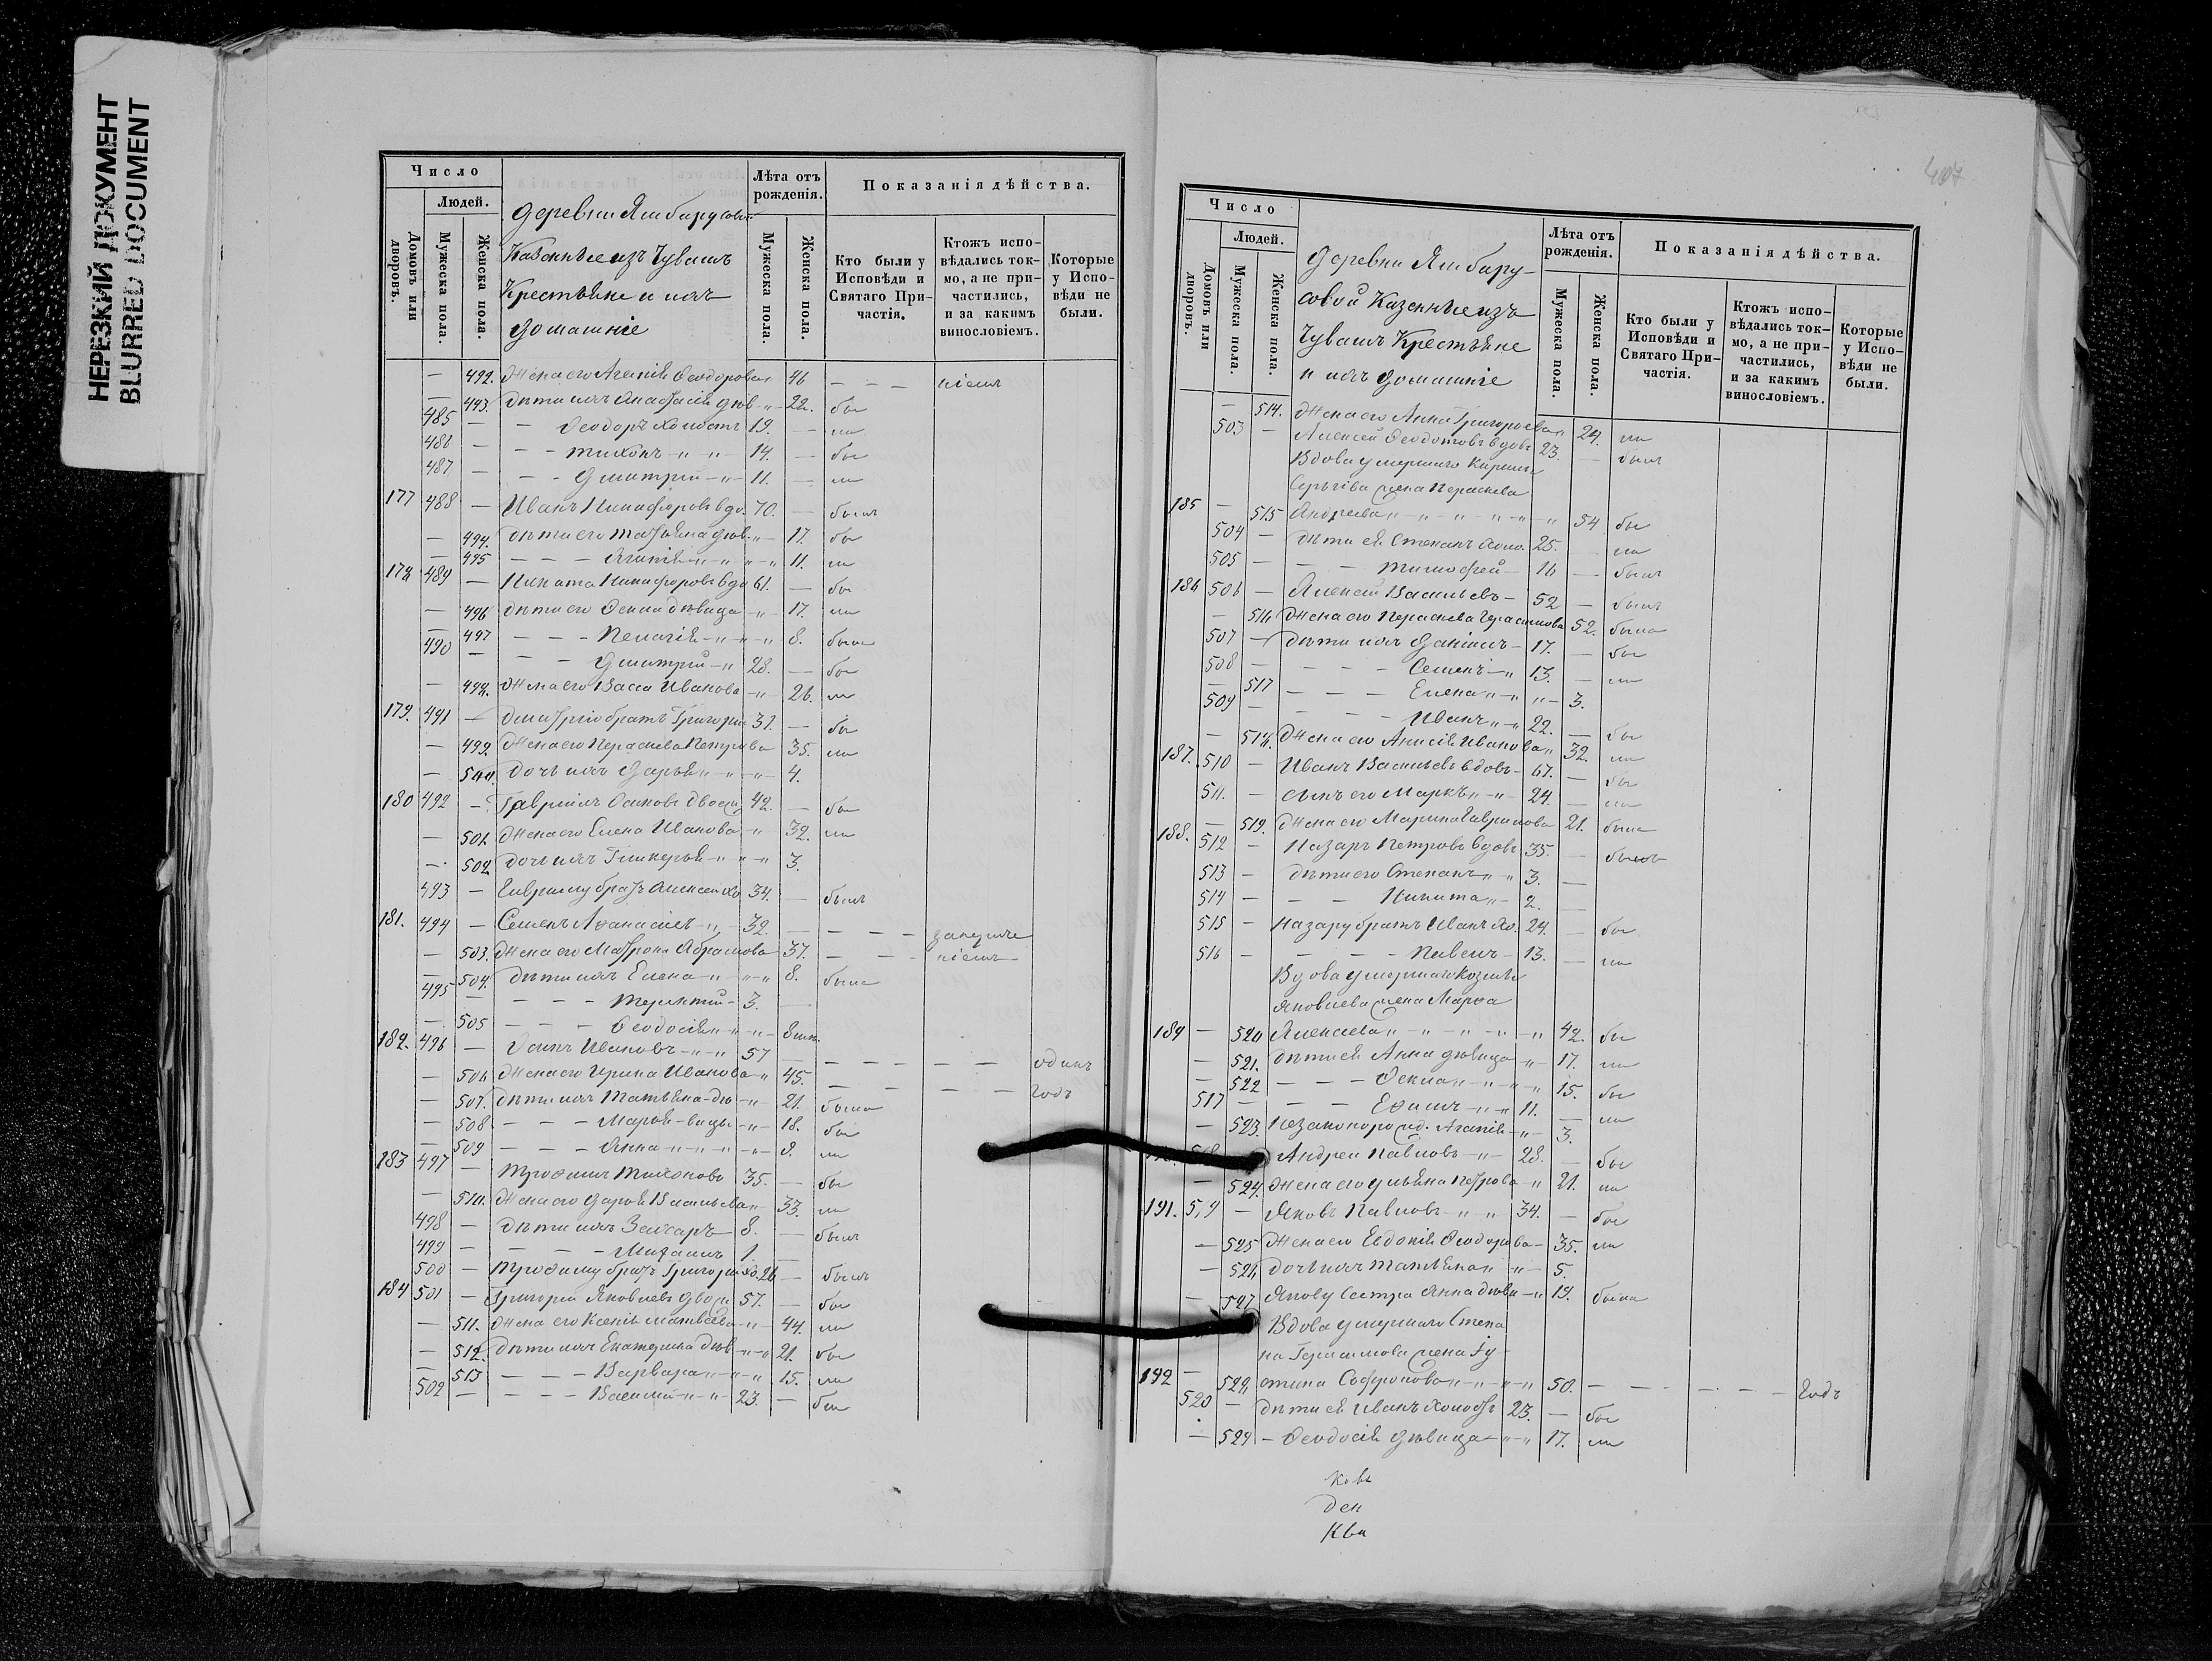 НЕРЕЗКИЙ ДОКУМЕНТ
BLURRED DOCUMENT
Число
Людей.
Домовъ или дворовъ.
Мужеска пола.
Женска пола.
Деревни Ямбарусовой
Казенные изъ Чувашъ
Крестьяне и ихъ
домашніе
Лѣта отъ рожденія.
Мужеска пола.
Женска пола.
Показанія дѣйства.
Кто были у Исповѣди и Святаго Причастія.
Ктожъ исповѣдались токмо, а не причастились, и за какимъ винословіемъ.
Которые у Исповѣди не были.
— 492. Жена его Агапія Ѳеодорова 46 — — —
— 493. Дѣти ихъ Анастасія дѣв. 22. бы
485 — — Ѳеодоръ холостъ 19. — ли
486 — — Тихонъ 14. — бы
487 — — Дмитрій 11. — ли
177 488 — Иванъ Никифоровъ вдо. 70. — былъ
— 494. Дѣти его Татьяна дѣв. 17. бы
— 495 — — — Агапія 11. ли
178 489 — Никита Никифоровъ вдо 61. — бы
— 496 Дѣти его Ѳекла дѣвица 17. ли
— 497 — — — Пелагія 8. была
490 — — — Дмитрій 28. — бы
— 498. Жена его Васса Иванова 26. ли
179. 491 — Дмитрію братъ Григорій 31. — бы
— 499. Жена его Параскева Петрова 35. ли
— 500 Дочь ихъ Дарья 4.
180 492 — Гавріилъ Осиповъ двоеж. 42. — бы
— 501. Жена его Елена Иванова 32. ли
— 502 Дочь ихъ Гликерія 3.
493 — Гаврилу братъ Алексей хо 34. — былъ
181. 494 — Семенъ Аѳанасіевъ 32. — — — —
— 503. Жена его Матрона Абрамова 37. — — —
— 504. Дѣти ихъ Елена 8. была
495 — — — — Терентій 3. —
— 505 — — — Ѳеодосія
182. 496 — Осипъ Ивановъ 57 — — — — — одинъ
— 506 Жена его Ирина Иванова 45. — — — — — годъ
— 507. Дѣти ихъ Татьяна дѣ 21. была
— 508 — — — Марья вицы 18. бы
— 509 — — — Анна 8. ли
183 497 — Трофимъ Тихоновъ 35. — бы
— 510. Жена его Дарья Васильева 33. ли
498 — Дѣти ихъ Захаръ 8. — былъ
499 — — — — Михаилъ 1. —
500 — Трофиму братъ Григорій хо. 26 — былъ
184 501 — Григорій Яковлевъ двоеж 57. — бы
— 511. Жена его Ксенія Матвѣева 44. ли
— 512. Дѣти ихъ Екатерина дѣв 21. бы
— 513 — — — Варвара 15. ли
502 — — — — Василій 23. — бы
407
Число
Людей.
Домовъ или дворовъ.
Мужеска пола.
Женска пола.
Деревни Ямбару-
совой Казенные изъ
Чувашъ Крестьяне
и ихъ домашніе
Лѣта отъ рожденія.
Мужеска пола.
Женска пола.
Показанія дѣйства.
Кто были у Исповѣди и Святаго Причастія.
Ктожъ исповѣдались токмо, а не причастились, и за какимъ винословіемъ.
Которые у Исповѣди не были.
— 514. Жена его Анна Григорьева 24. ли
503 — Алексей Ѳедотовъ вдовъ 23. — былъ
Вдова умершаго Кирилы
Сергѣева жена Параскева
185 — 515 Андреева 54 бы
504 — Дѣти ея Степанъ холо. 25. — ли
505 — — Тимофей 16 — былъ
186 506 — Алексей Васильевъ 52 — былъ
— 516 Жена его Параскева Герасимова 52. была
507 — Дѣти ихъ Даніилъ 17. — бы
508 — — — — Семенъ 13. — ли
— 517 — — — Елена 3.
509 — — — — Иванъ 22. — бы
— 518. Жена его Анисія Иванова 32. ли
187. 510 — Иванъ Васильевъ вдовъ 67. — бы
511. — сынъ его Маркъ 24. — ли
— 519. Жена его Марина Гаврилова 21. была
188. 512 — Назаръ Петровъ вдовъ 35. — былъ
513 — дѣти его Степанъ 3. —
514 — — — Никита 2. —
515 — Назару братъ Иванъ хо. 24. — бы
516 — — — — Павелъ 13. — ли
Вдова умершаго Козьмы
Яковлева жена Марѳа
189 — 520 Алексеева 42. бы
— 521. Дѣти ея Анна дѣвица 17. ли
— 522 — — — Ѳекла 15. бы
517 — — — Ефимъ 11. — ли
— 523. Незаконорожд. Агапія 3.
Андрей Павловъ 28. — бы
— 524. Жена его Ульяна Петрова 21. ли
191. 519 — Яковъ Павловъ 34. — бы
— 525 Жена его Евдокія Ѳеодорова 35. ли
— 526 Дочь ихъ Татьяна 5.
— 527 Якову сестра Анна дѣви 19. была
Вдова умершаго Степа
на Герасимова жена Іу-
192 — 528 стина Софронова 50. — — — — — годъ
520 — Дѣти ея Иванъ холостъ 23. — бы
— 529 — Ѳеодосія дѣвица 17. ли